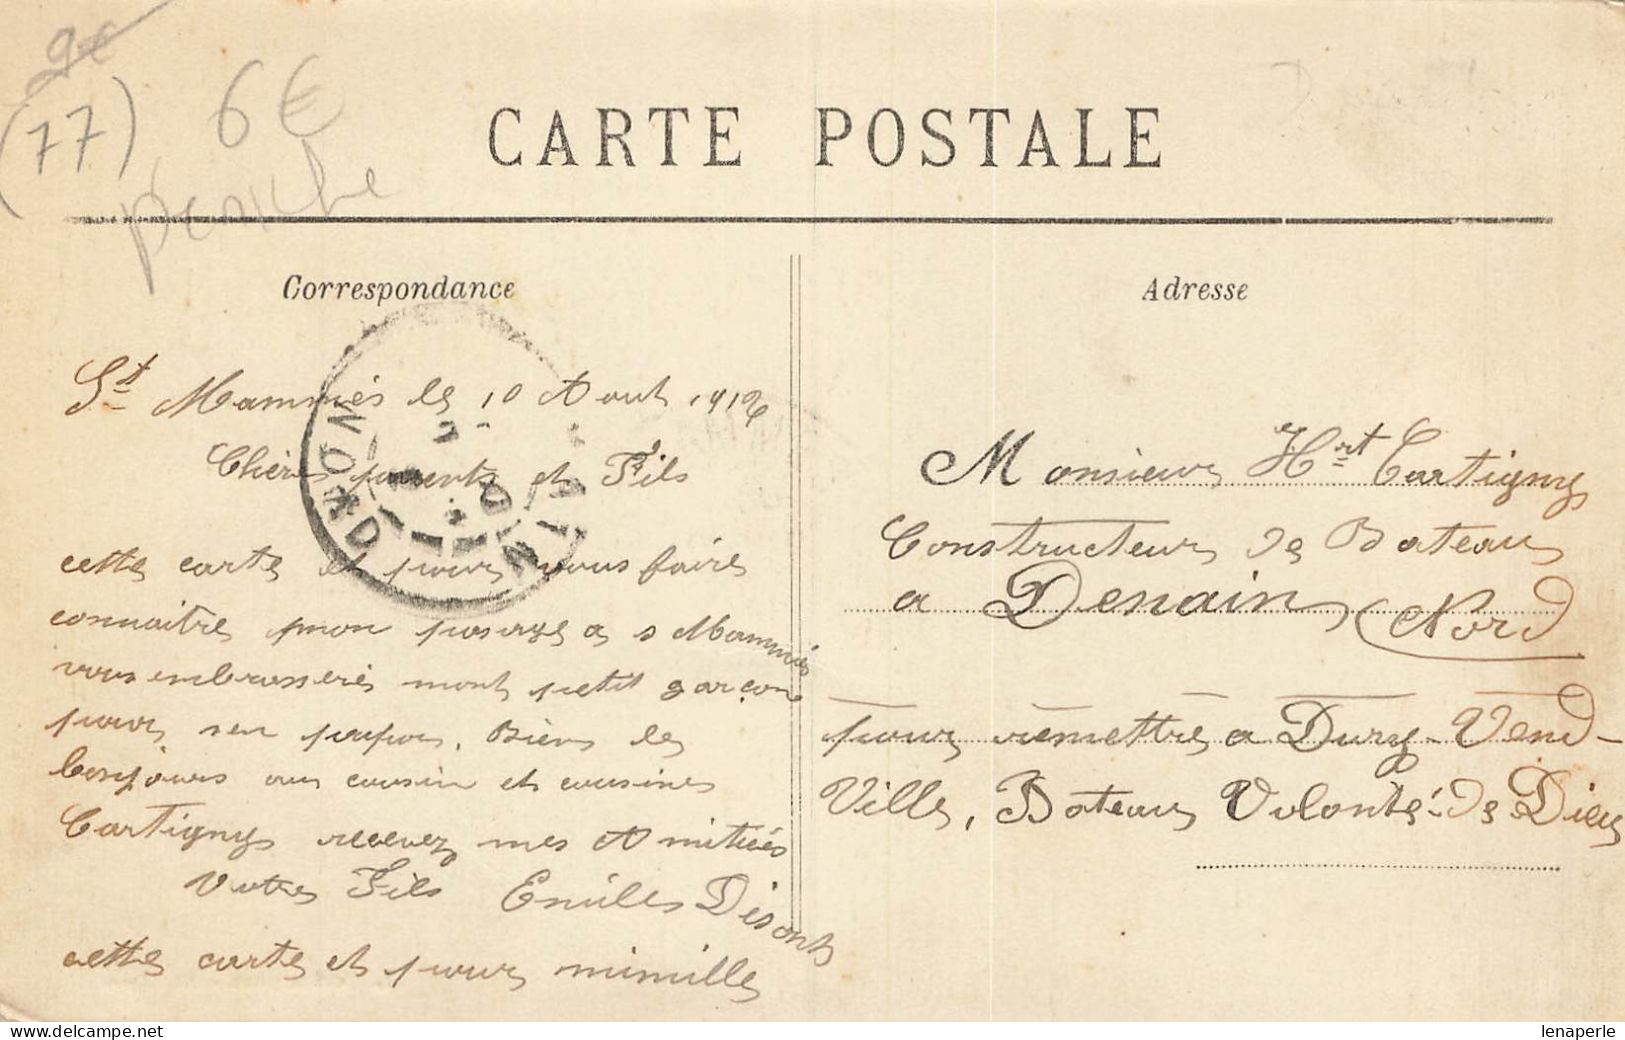 9€
(77)
6€
péniche
CARTE POSTALE
Correspondance
St Mammés le 10 Aout 1912
Chères parents et Fils
cette carte et pour vous faire
connaitre mon pasage a s Mammés
vous embrasserés mont petit garçon
pour sen papa. Bien les
bonjours au cousin et cousines
Cartigny recevez mes Amitiés
Votre Fils Emile Disont
cette carte et pour mimille
NORD
Adresse
Monsieur Hrt Cartigny
Constructeur de Bateau
a Denain (Nord)
pour remettre a Dury-Vend-
Ville, Bateau Volonté-de Dieu
delcampe.net
lenaperle